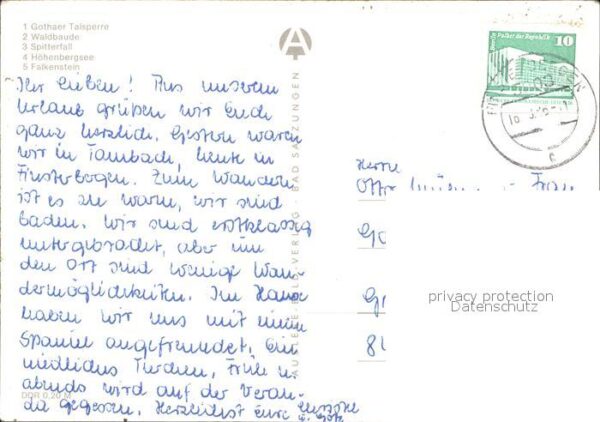 1 Gothaer Talsperre
2 Waldbaude
3 Spitterfall
4 Höhenbergsee
5 Falkenstein
Ihr Lieben! Aus unserem
Urlaub grüßen wir Euch
ganz herzlich. Gestern waren
wir in Tambach, heute in
Finsterbergen. Zum Wandern
ist es zu warm, wir sind
baden. Wir sind erstklassig
untergebracht, aber um
den Ort sind wenige Wan-
dermöglichkeiten. Im Hause
haben wir uns mit einem
Spaniel angefreundet. Ein
niedliches Tierchen. Früh u.
abends wird auf der Veran-
da gegessen. Herzlichst Eure
DDR 0,20 M
AUSLESE-BILD-VERLAG · BAD SALZUNGEN
A
Berlin Palast der Republik
10
Herrn
Otto
Frau
privacy protection
Datenschutz